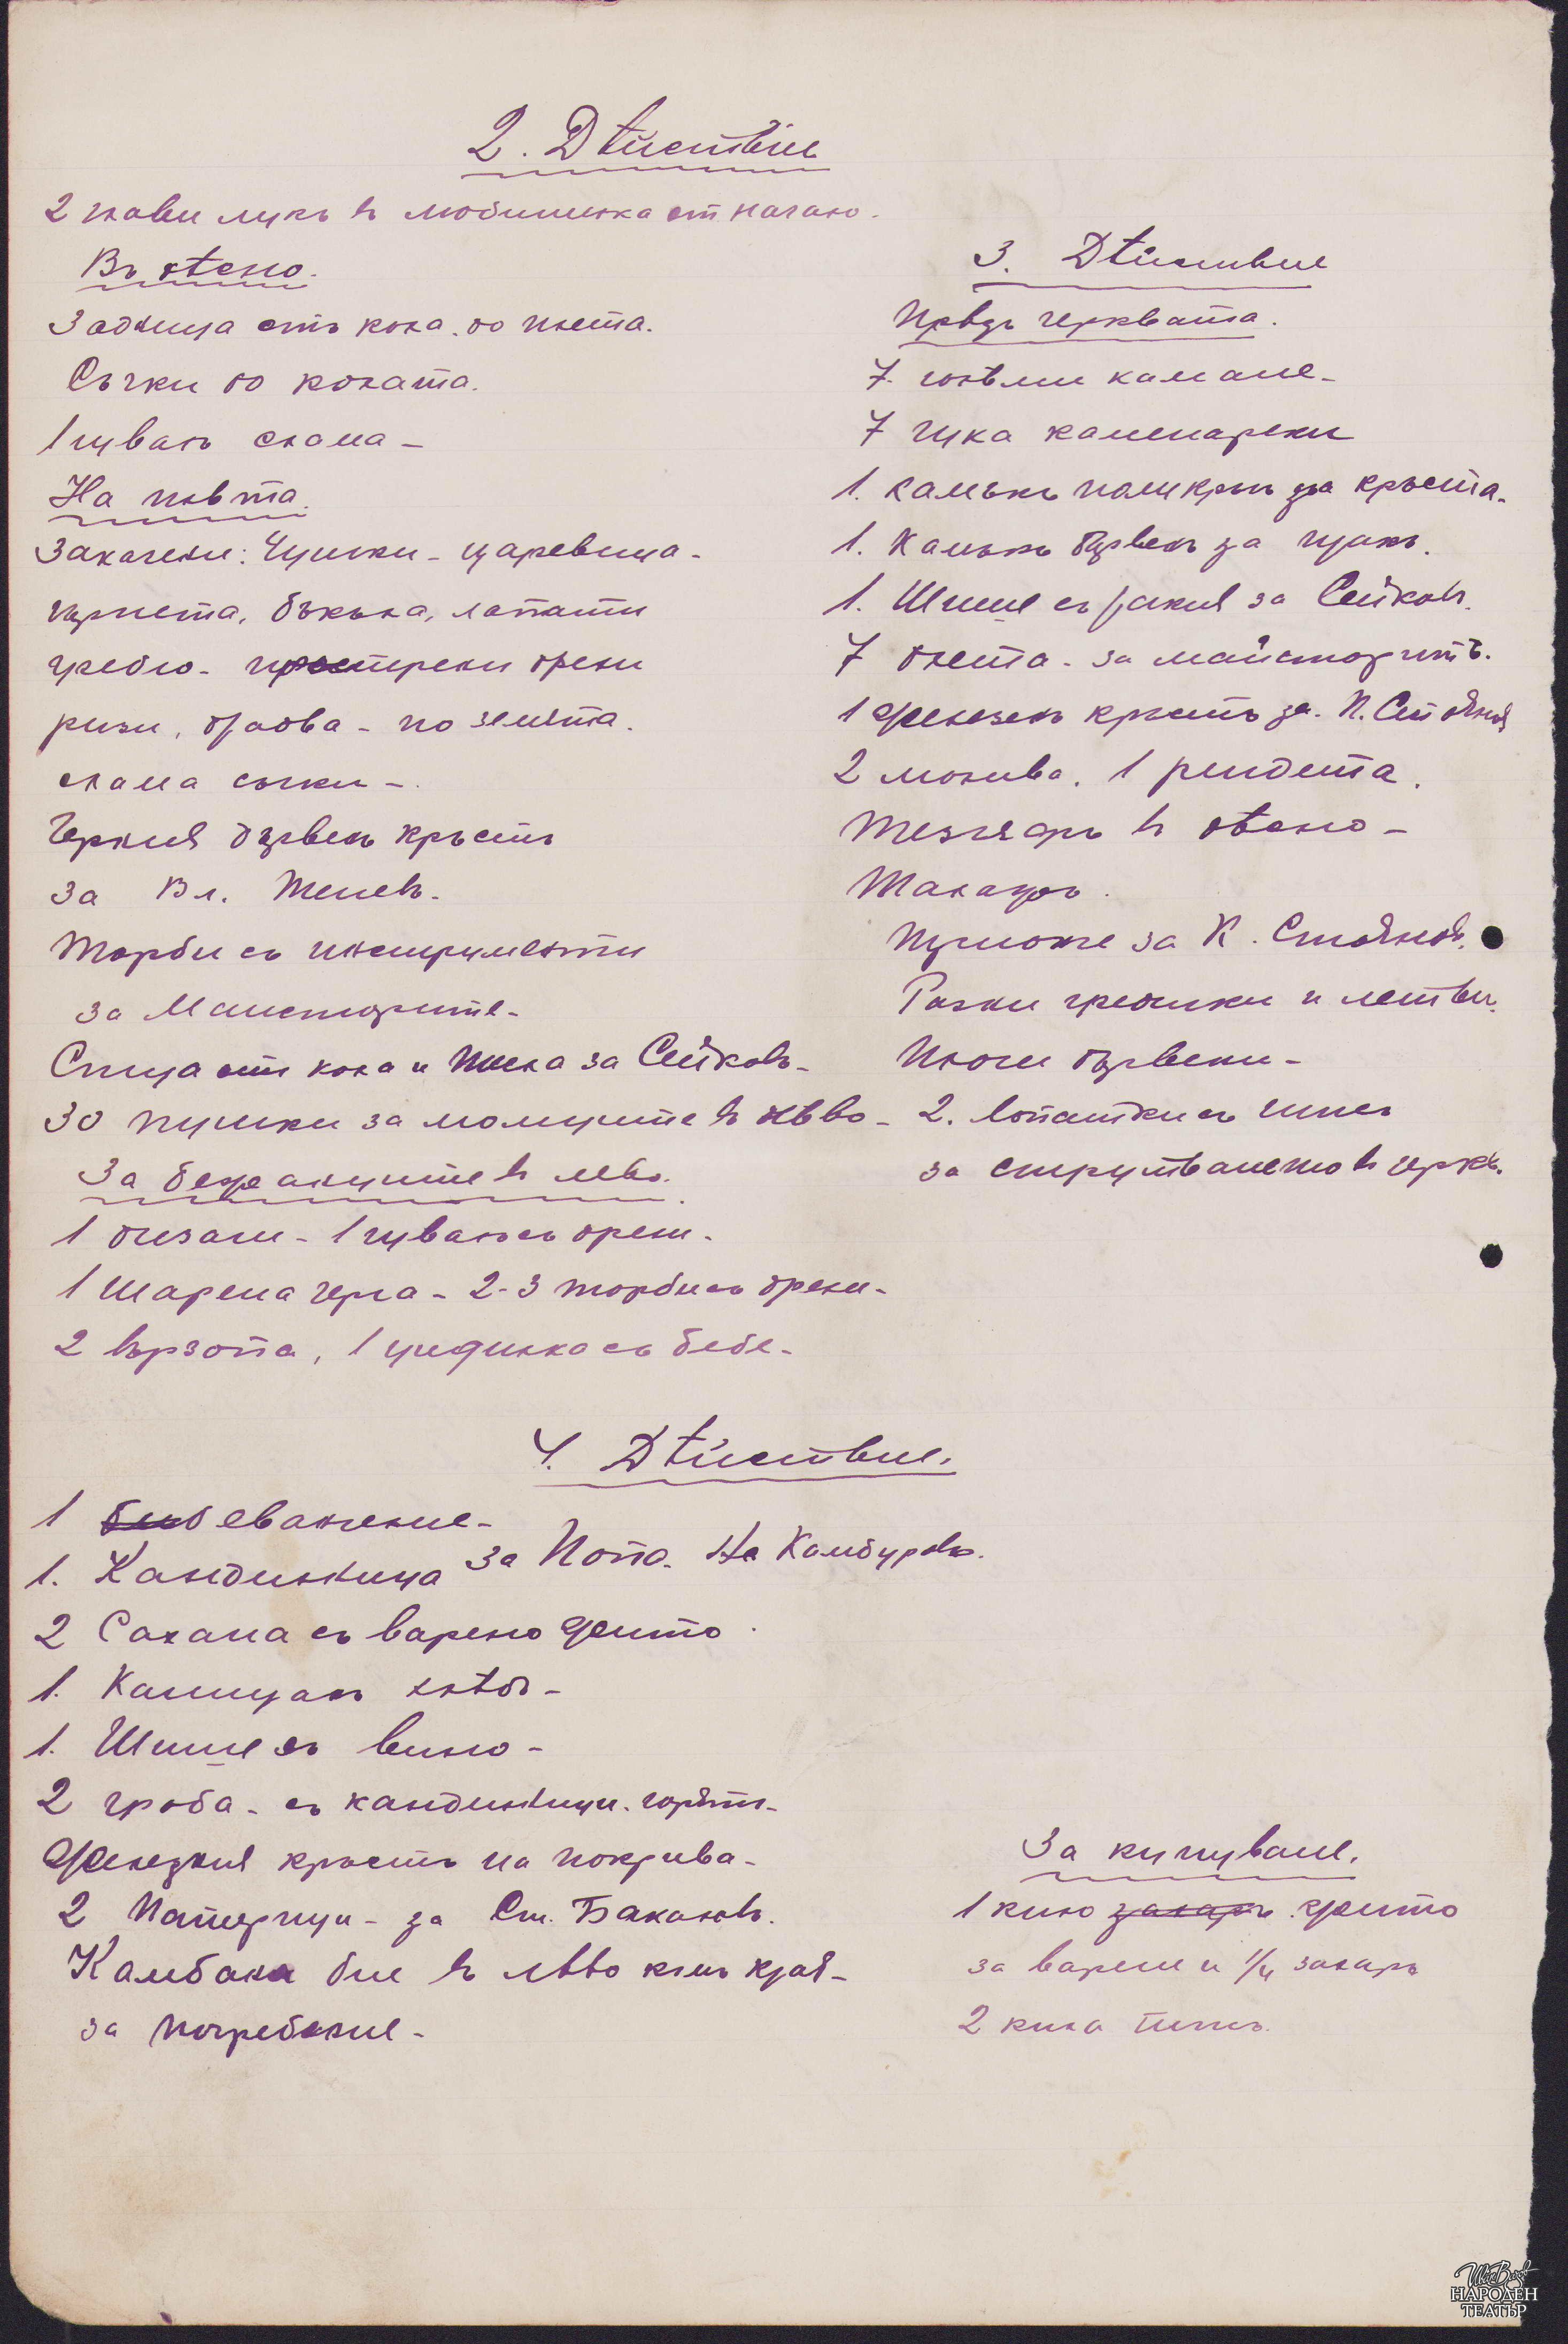 2. Дѣйствие
2 глави лукъ въ любимика от начало.
Въ дѣсно.
Задница отъ кола. до плета.
Съчки до колата.
1 чувалъ слама -
На плѣта
Закачени: Чушки - царевица -
гърнета, бъкъла, лопати
гребло - прострени дрехи
ризи, дърва - по земята.
слама съчки -
Черния дървенъ кръстъ
за Вл. Теневъ.
Торби съ инструменти
за Майсторите -
Спица отъ кола и за Сейковъ -
30 пушки за момчетата въ лѣво -
За бежанците въ лѣво.
1 дисаги - 1 чувалъ съ дрехи -
1 Шарена черга - 2-3 торби съ дрехи -
2 вързопа, 1 съ бебе -
3. Дѣйствие
Прѣдъ черквата.
7. голѣми камъне -
7 чука каменарски
1. Камъкъ за кръста -
1. Камъкъ дървенъ за чукъ.
1. Шише съ ракия за Сейковъ.
7 длета - за майсторитѣ.
1 железенъ кръстъ за П. Стоянов
2 молива. 1 рендета.
Тезгяхъ въ дѣсно -
Талагъ.
за К. Стояновъ.
Разни гредички и летви.
Икони дървени -
2. Лопатки съ гипсъ
за въ черкв.
4. Дѣйствие.
1 биб евангелие -
1. Кандилница за Попа. На Камбуровъ.
2 Сахана съ варено жито.
1. Калпацанъ хлѣбъ -
1. Шише съ вино -
2 гроба - съ кандилници. горятъ -
Железния кръстъ на покрива -
2 Патерици - за Ст. Бакаловъ.
Камбана бие въ лѣво къмъ края -
за погребание -
За купуване.
1 кило захаръ. жито
за варене и 1/4 захаръ
2 кила гипсъ.
Иван Вазов
НАРОДЕН
ТЕАТЪР